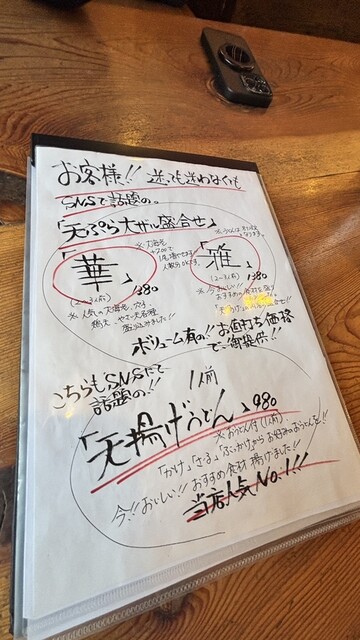 お客様!! 迷っても迷わなくても
SNSで話題の。
「天ぷら大ザル盛合せ」
「華」
(2〜3人前)
1380
※人気の大海老、穴子、
盛込みました!!
※大海老
「雅」
(2〜3人前)
1380
※今おいしい!!
おすすめの
ボリューム有り!! お値打ち価格
でご御提供!!
こちらもSNSにて
話題の!!
1人前
「天揚げうどん」980
※おうどん付(1人前)
「かけ」「ざる」「ぶっかけ」からお好みのおうどんを!!
今!!おいしい!! おすすめ食材揚げました!!
当店人気No.1!!!